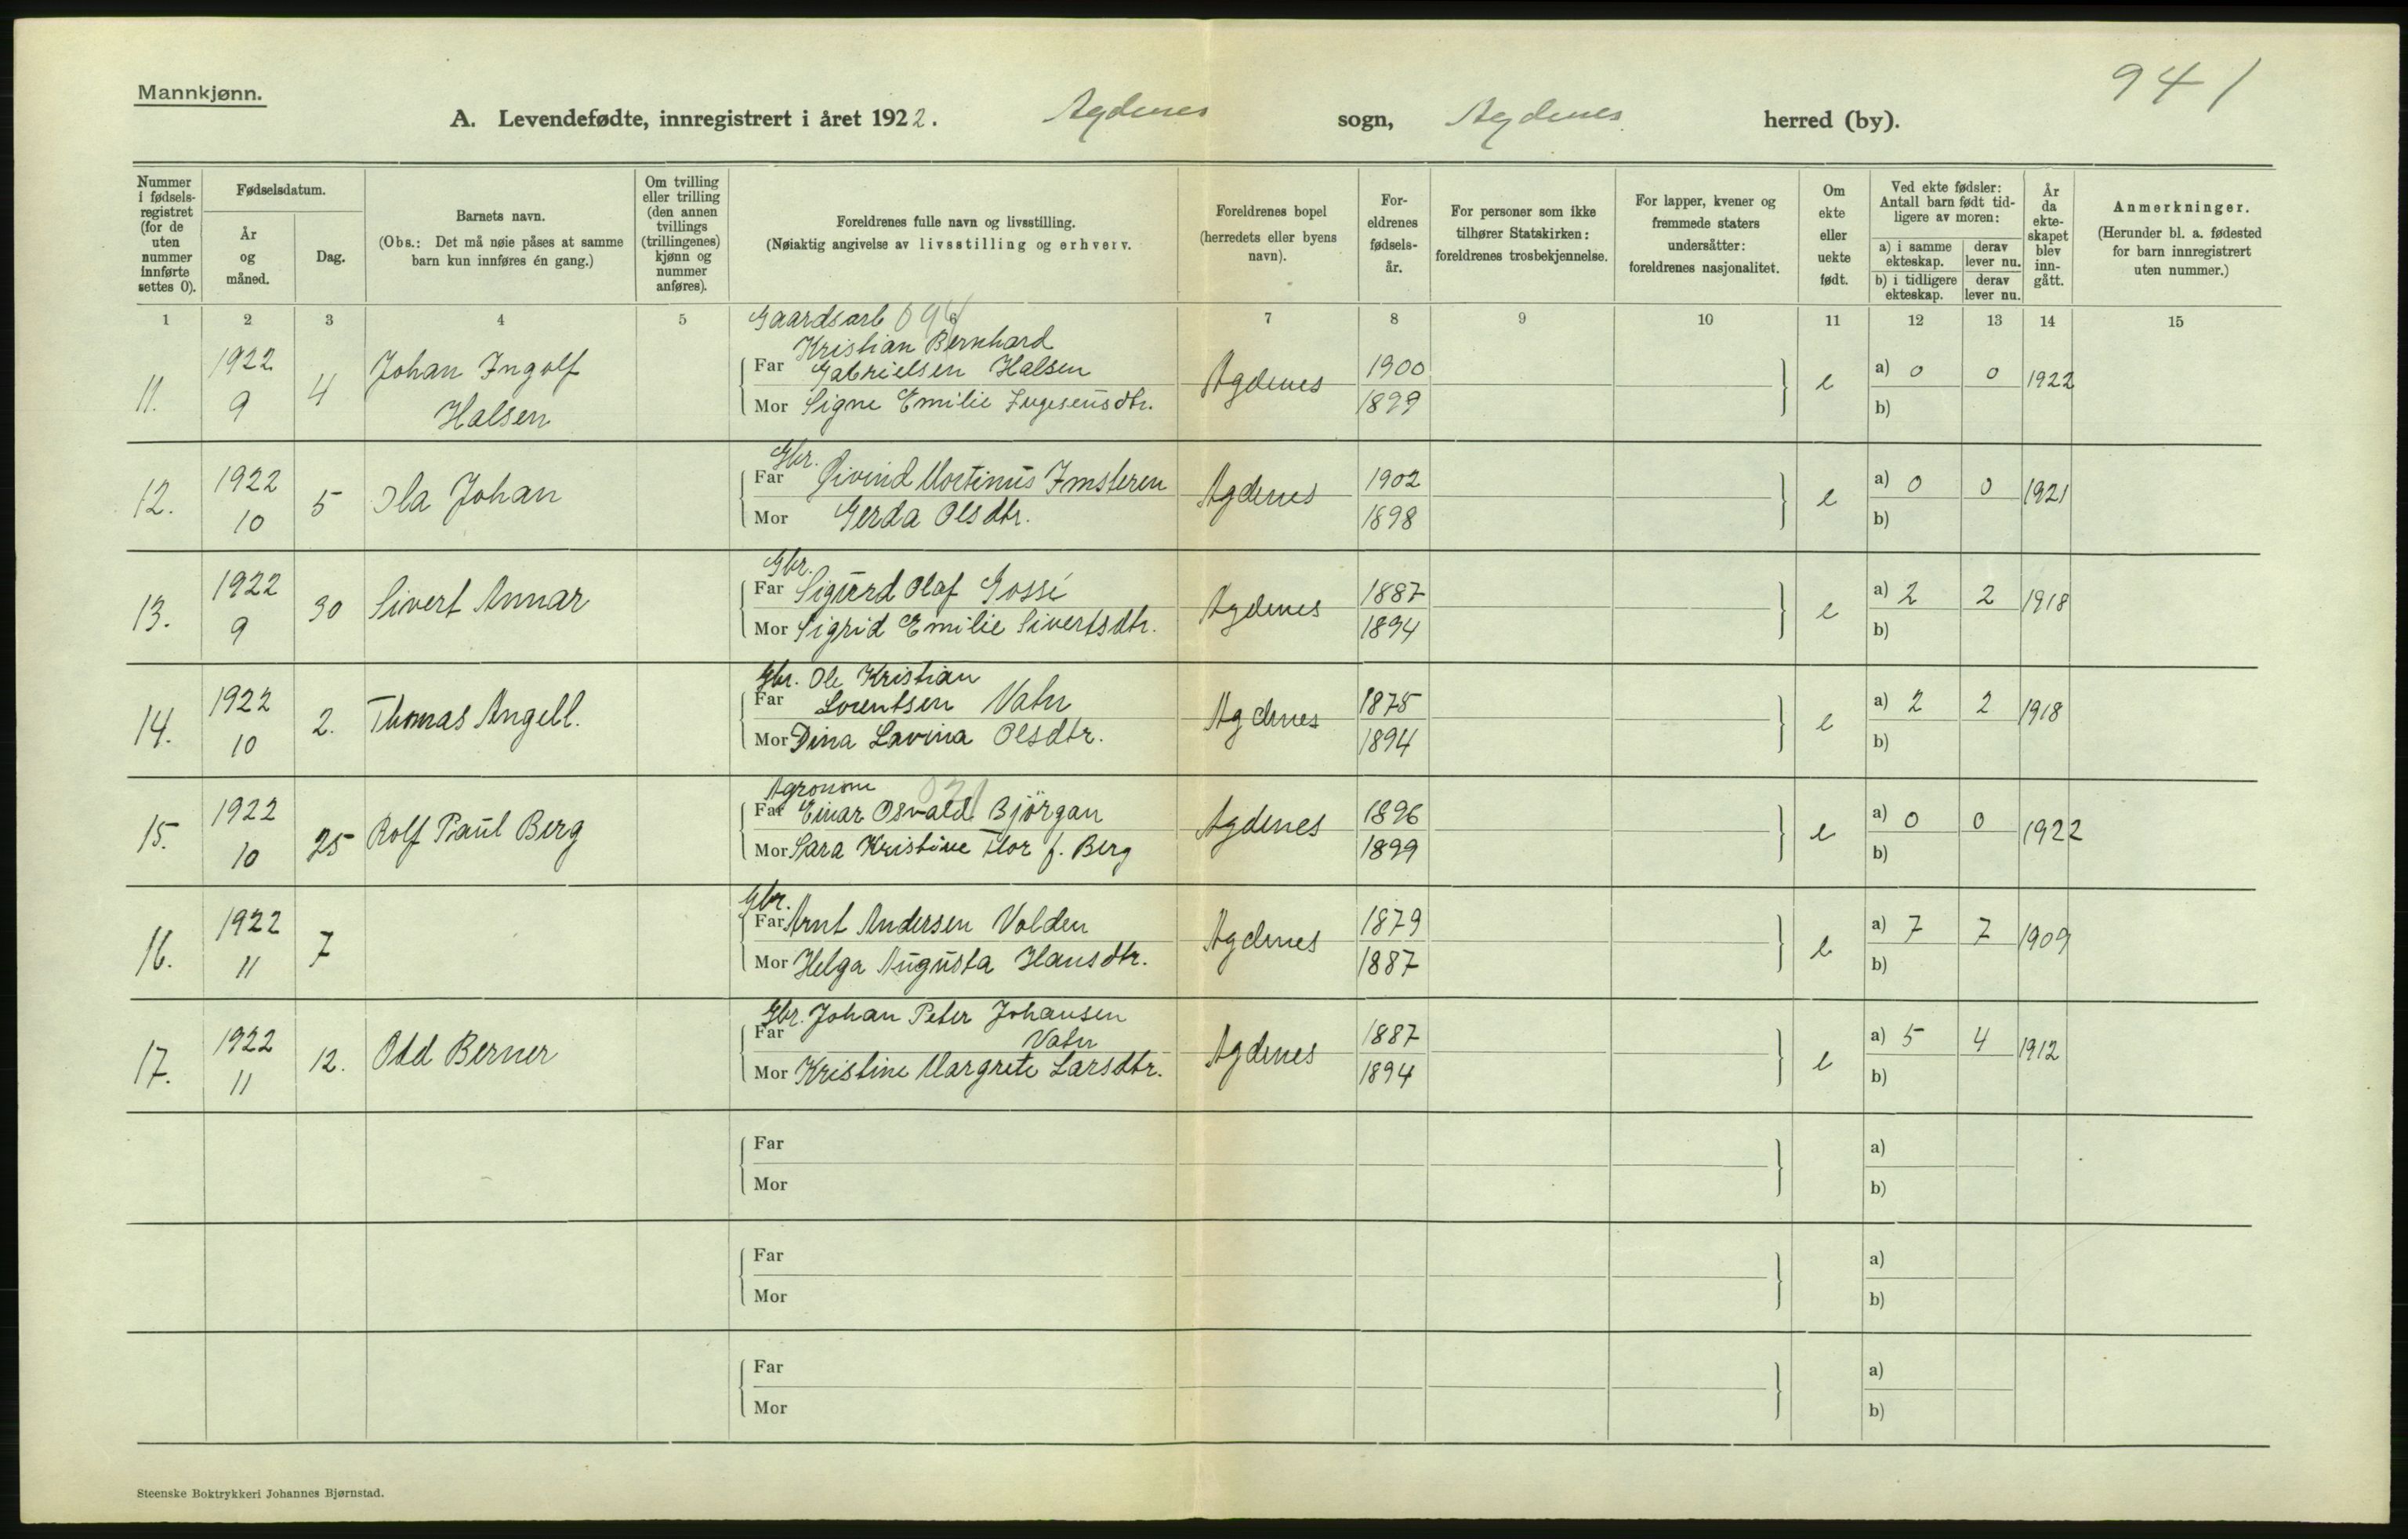 Mannkjønn.
941
A. Levendefødte, innregistrert i året 1922. Agdenes sogn, Agdenes herred (by).
Nummer i fødsels-registret (for de uten nummer innførte settes 0).
Fødselsdatum.
År og måned.
Dag.
Barnets navn.
(Obs.: Det må nøie påses at samme barn kun innføres én gang.)
Om tvilling eller trilling (den annen tvillings (trillingenes) kjønn og nummer anføres).
Foreldrenes fulle navn og livsstilling.
(Nøiaktig angivelse av livsstilling og erhverv.
Foreldrenes bopel (herredets eller byens navn).
For-eldrenes fødsels-år.
For personer som ikke tilhører Statskirken: foreldrenes trosbekjennelse.
For lapper, kvener og fremmede staters undersåtter: foreldrenes nasjonalitet.
Om ekte eller uekte født.
Ved ekte fødsler: Antall barn født tid-ligere av moren:
a) i samme ekteskap.
derav lever nu.
b) i tidligere ekteskap.
derav lever nu.
År da ekte-skapet blev inn-gått.
Anmerkninger.
(Herunder bl. a. fødested for barn innregistrert uten nummer.)
1 2 3 4 5 6 7 8 9 10 11 12 13 14 15
Gaardsarb 094
Kristian Bernhard
11. 1922 9 4 Johan Ingolf Halsen
Far Gabrielsen Halsen Agdenes 1900 e a) 0 0 1922
Mor Signe Emilie Ingesensdtr. 1899 b)
Gbr.
12. 1922 10 5 Ola Johan
Far Øivind Mortinus Imsteren Agdenes 1902 e a) 0 0 1921
Mor Gerda Olsdtr. 1898 b)
Gbr.
13. 1922 9 30 Sivert Annar
Far Sigurd Olaf Gossé Agdenes 1887 e a) 2 2 1918
Mor Sigrid Emilie Sivertsdtr. 1894 b)
Gbr. Ole Kristian
14. 1922 10 2. Thomas Angell.
Far Lorentsen Vatn Agdenes 1875 e a) 2 2 1918
Mor Dina Lavina Olsdtr. 1894 b)
Agronom 021
15. 1922 10 25 Rolf Paul Berg
Far Einar Osvald Björgan Agdenes 1896 e a) 0 0 1922
Mor Sara Kristine Flor f. Berg 1899 b)
Gbr.
16. 1922 11 7
Far Arnt Andersen Volden Agdenes 1879 e a) 7 7 1909
Mor Helga Augusta Hansdtr. 1887 b)
Gbr. Johan Peter Johansen
17. 1922 11 12. Odd Berner
Far Vatn Agdenes 1887 e a) 5 4 1912
Mor Kristine Margrete Larsdtr. 1894 b)
Far a)
Mor b)
Far a)
Mor b)
Far a)
Mor b)
Steenske Boktrykkeri Johannes Bjørnstad.